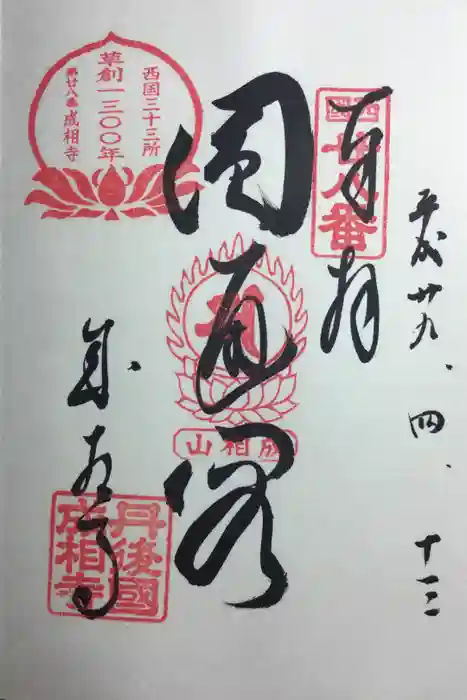 平成廿九、四、十三
奉拝
西國
廿八番
圓通閣
成相山
成相寺
丹後國
成相寺
西国三十三所
草創一三〇〇年
第廿八番 成相寺